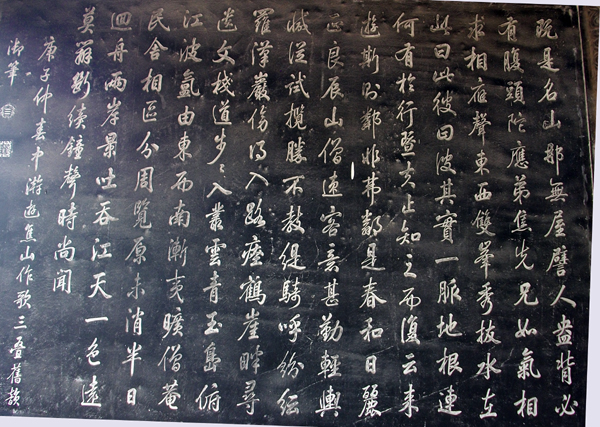 既是名山那無屋譬人盎背必
有腹頭陀應弟焦先兄如氣相
求相應聲東西雙峯秀拔水在
此曰此彼曰彼其實一脈地根連
何有於行止知之而復云来
遊斯則鄰非弗鄰是春和日麗
正良辰山僧速客意甚勤輕輿
減從試攬勝不教緹騎呼紛紜
羅漢巖傍得入路瘞鶴崖畔尋
遺文棧道步〻入叢雲青玉島俯
江波氤由東而南漸夷曠僧菴
民舍相區分周覽原未消半日
迴舟兩岸景吐吞江天一色遠
莫辨斷續鐘聲時尚聞
庚子仲春中澣遊焦山作歌三疊舊韻
御筆